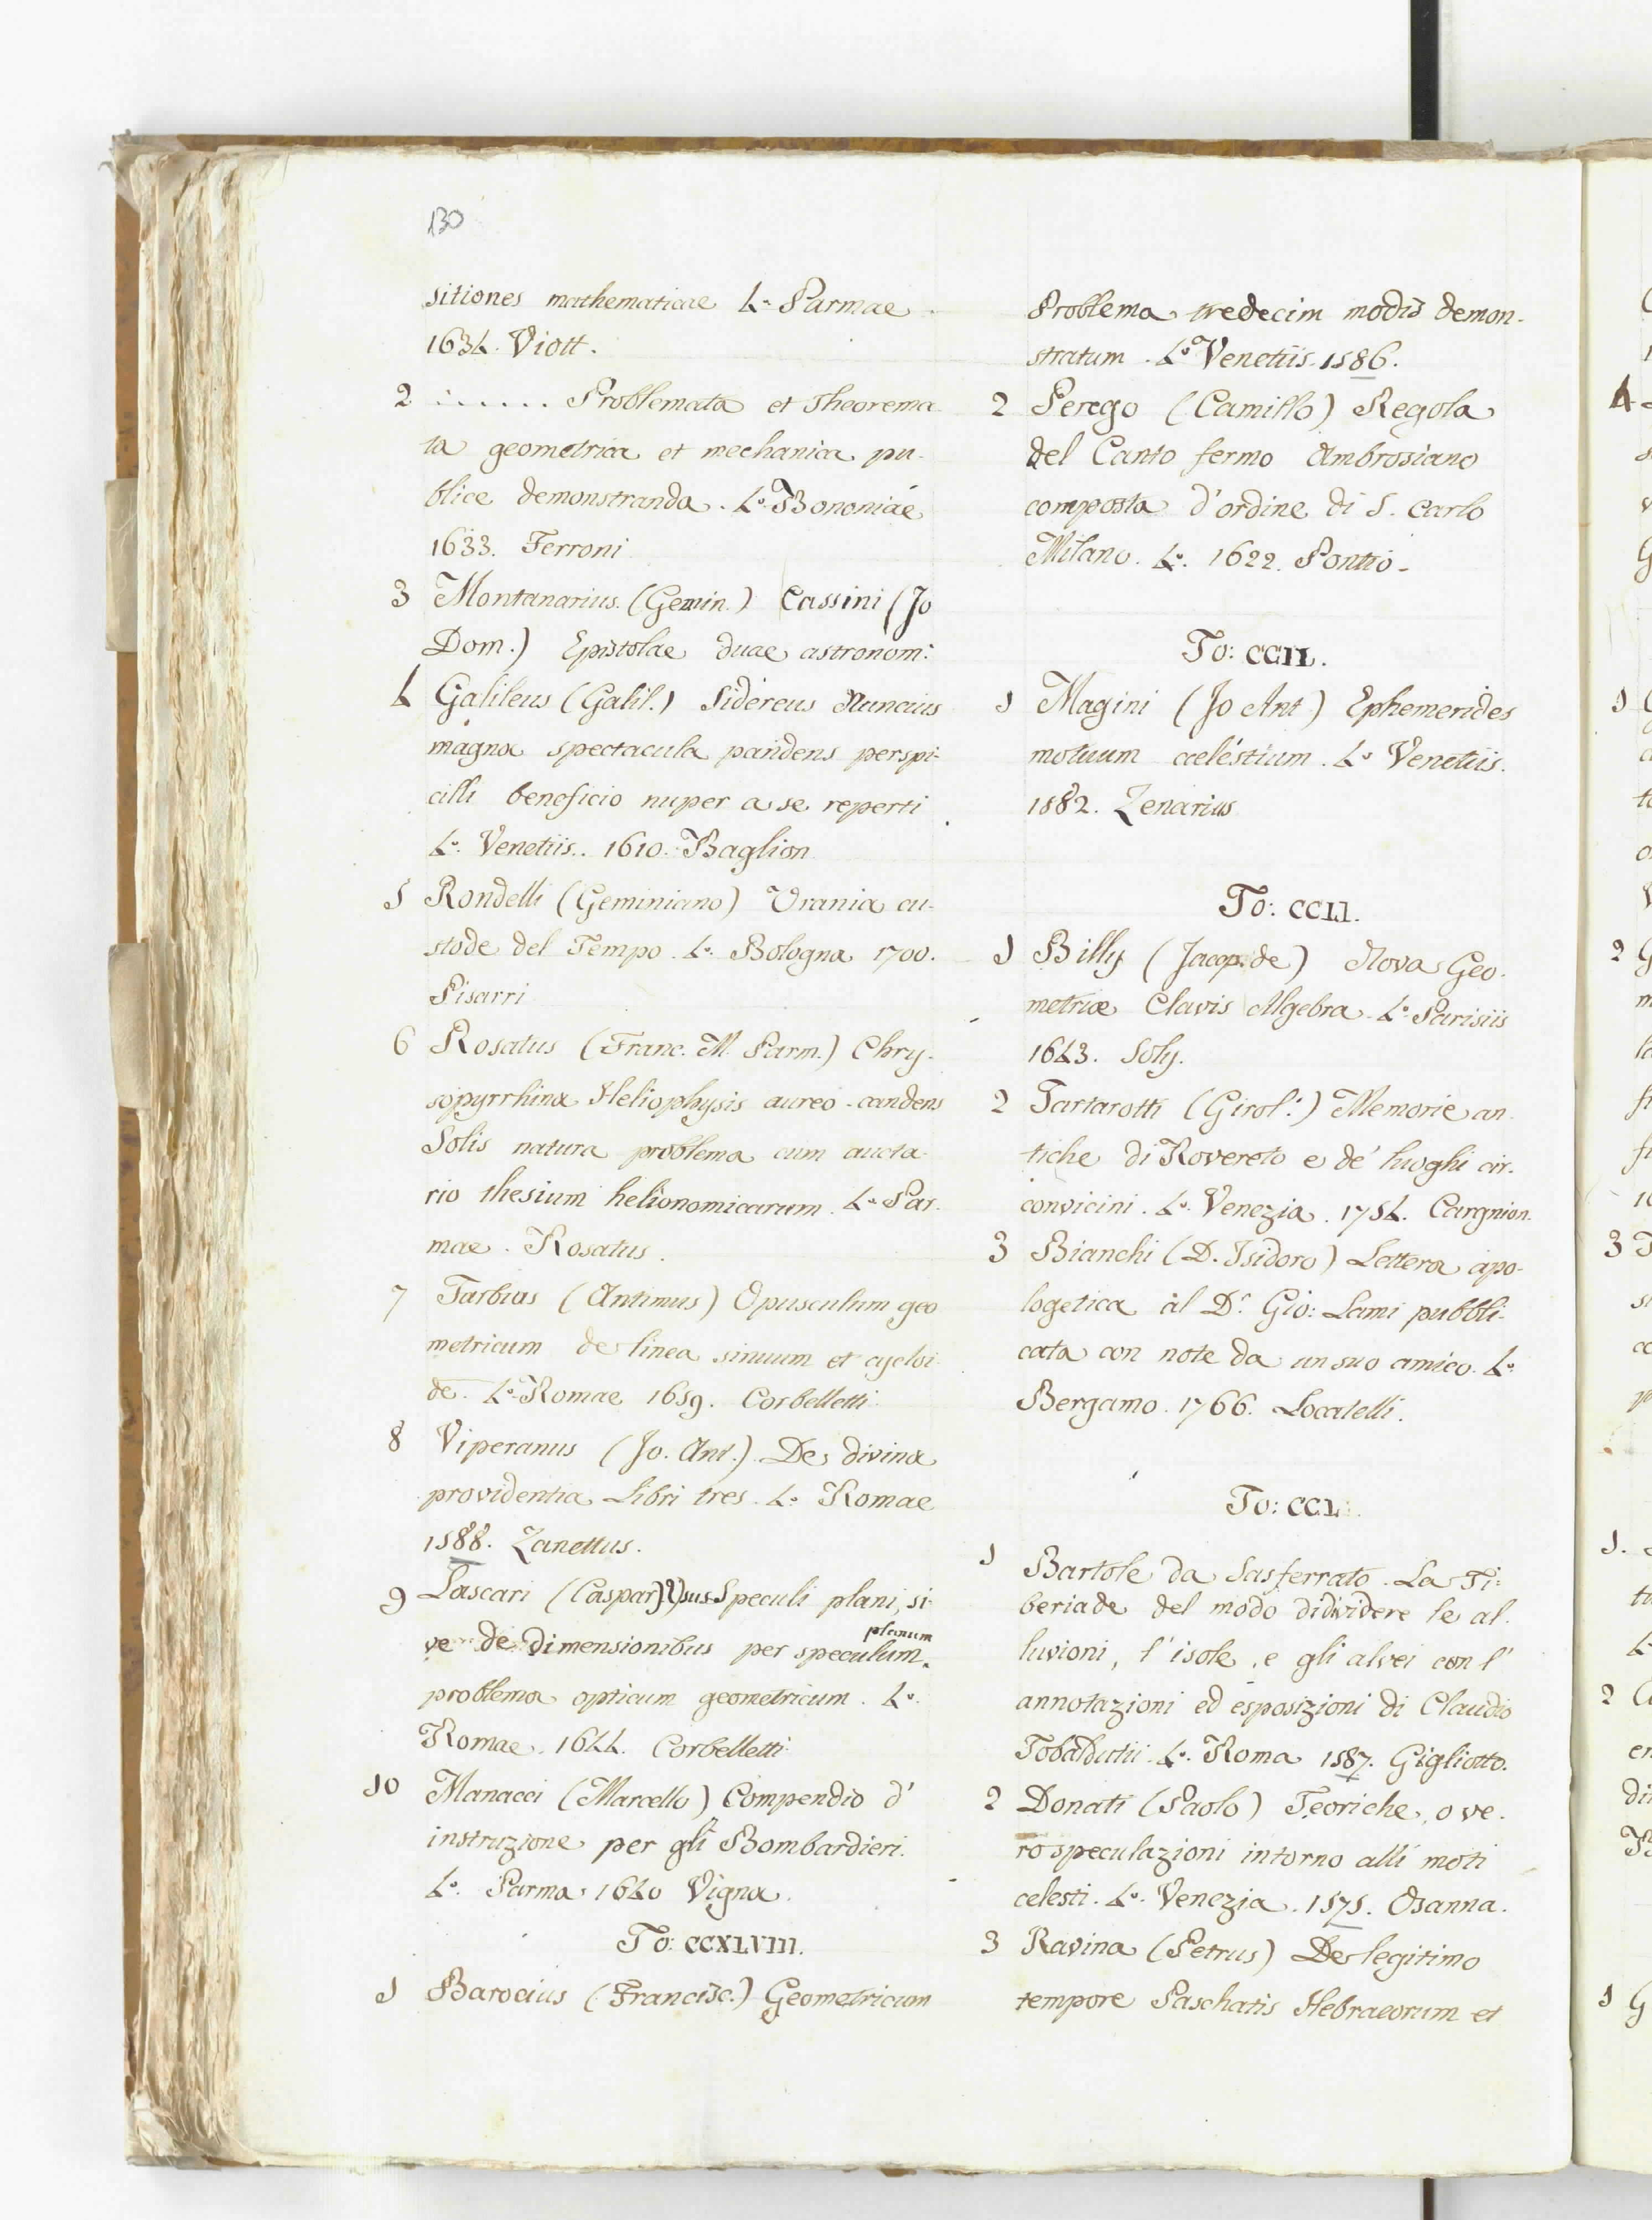 130
sitiones mathematicae 4.º Parmae
1634. Viott.
2 ...... Problemata et Theorema
ta geometrica et mechanica pu-
blice demonstranda. 4.º Bononiae
1633. Ferroni
3 Montanarius (Gemin.) Cassini (Jo
Dom.) Epistolae duae astronom:
4 Galileus (Galil.) Sidereus Nuncius
magna spectacula pandens perspi-
cilli beneficio nuper a se reperti
4.º Venetiis. 1610. Baglion
5 Rondelli (Geminiano) Urania cu-
stode del Tempo. 4.º Bologna 1700.
Pisarri
6 Rosatus (Franc. M. Parm.) Chry-
sopyrrhina Heliophysis aureo-candens
Solis natura problema cum aucta-
rio thesium helionomicarum. 4.º Par-
mae. Rosatus.
7 Tarbius (Antimus) Opusculum geo
metricum de linea sinuum et cycloi
de. 4.º Romae 1659. Corbelletti
8 Viperanus (Jo. Ant.) De divina
providentia Libri tres. 4.º Romae
1588. Zanettus.
9 Lascari (Caspar) Speculi plani, si-
ve de dimensionibus per speculum planum
problema opticum geometricum. 4.º
Romae. 1644. Corbelletti
10 Manacci (Marcello) Compendio d'
instruzione per gli Bombardieri.
4.º Parma 1640 Vigna.
To: CCXLVIII.
1 Barocius (Francisc.) Geometricum
Problema tredecim modis demon-
stratum. 4.º Venetiis. 1586.
2 Perego (Camillo) Regola
del Canto fermo Ambrosiano
composta d'ordine di S. Carlo
Milano. 4.º 1622. Pontio.
To: CCIL.
1 Magini (Jo Ant) Ephemerides
motuum coelestium. 4.º Venetiis.
1582. Zenarius
To: CCLI.
1 Billy (Jacop. de) Nova Geo-
metriae Clavis Algebra. 4.º Parisiis
1643. Soly.
2 Tartarotti (Girol.º) Memorie an
tiche di Rovereto e de' luoghi cir-
convicini. 4.º Venezia. 1754. Cargnion.
3 Bianchi (D. Isidoro) Lettera apo-
logetica al D.r Gio: Lami pubbli-
cata con note da un suo amico. 4.º
Bergamo. 1766. Locatelli.
To: CCL
1 Bartole da Sasferrato. La Ti-
beriade del modo didividere le al-
luvioni, l'isole, e gli alvei con l'
annotazioni ed esposizioni di Claudio
Tobaldutii. 4.º Roma 1587. Gigliotto.
2 Donati (Paolo) Teoriche, o ve-
ro speculazioni intorno alli moti
celesti. 4.º Venezia. 1575. Osanna.
3 Ravina (Petrus) De legitimo
tempore Paschatis Hebraeorum et